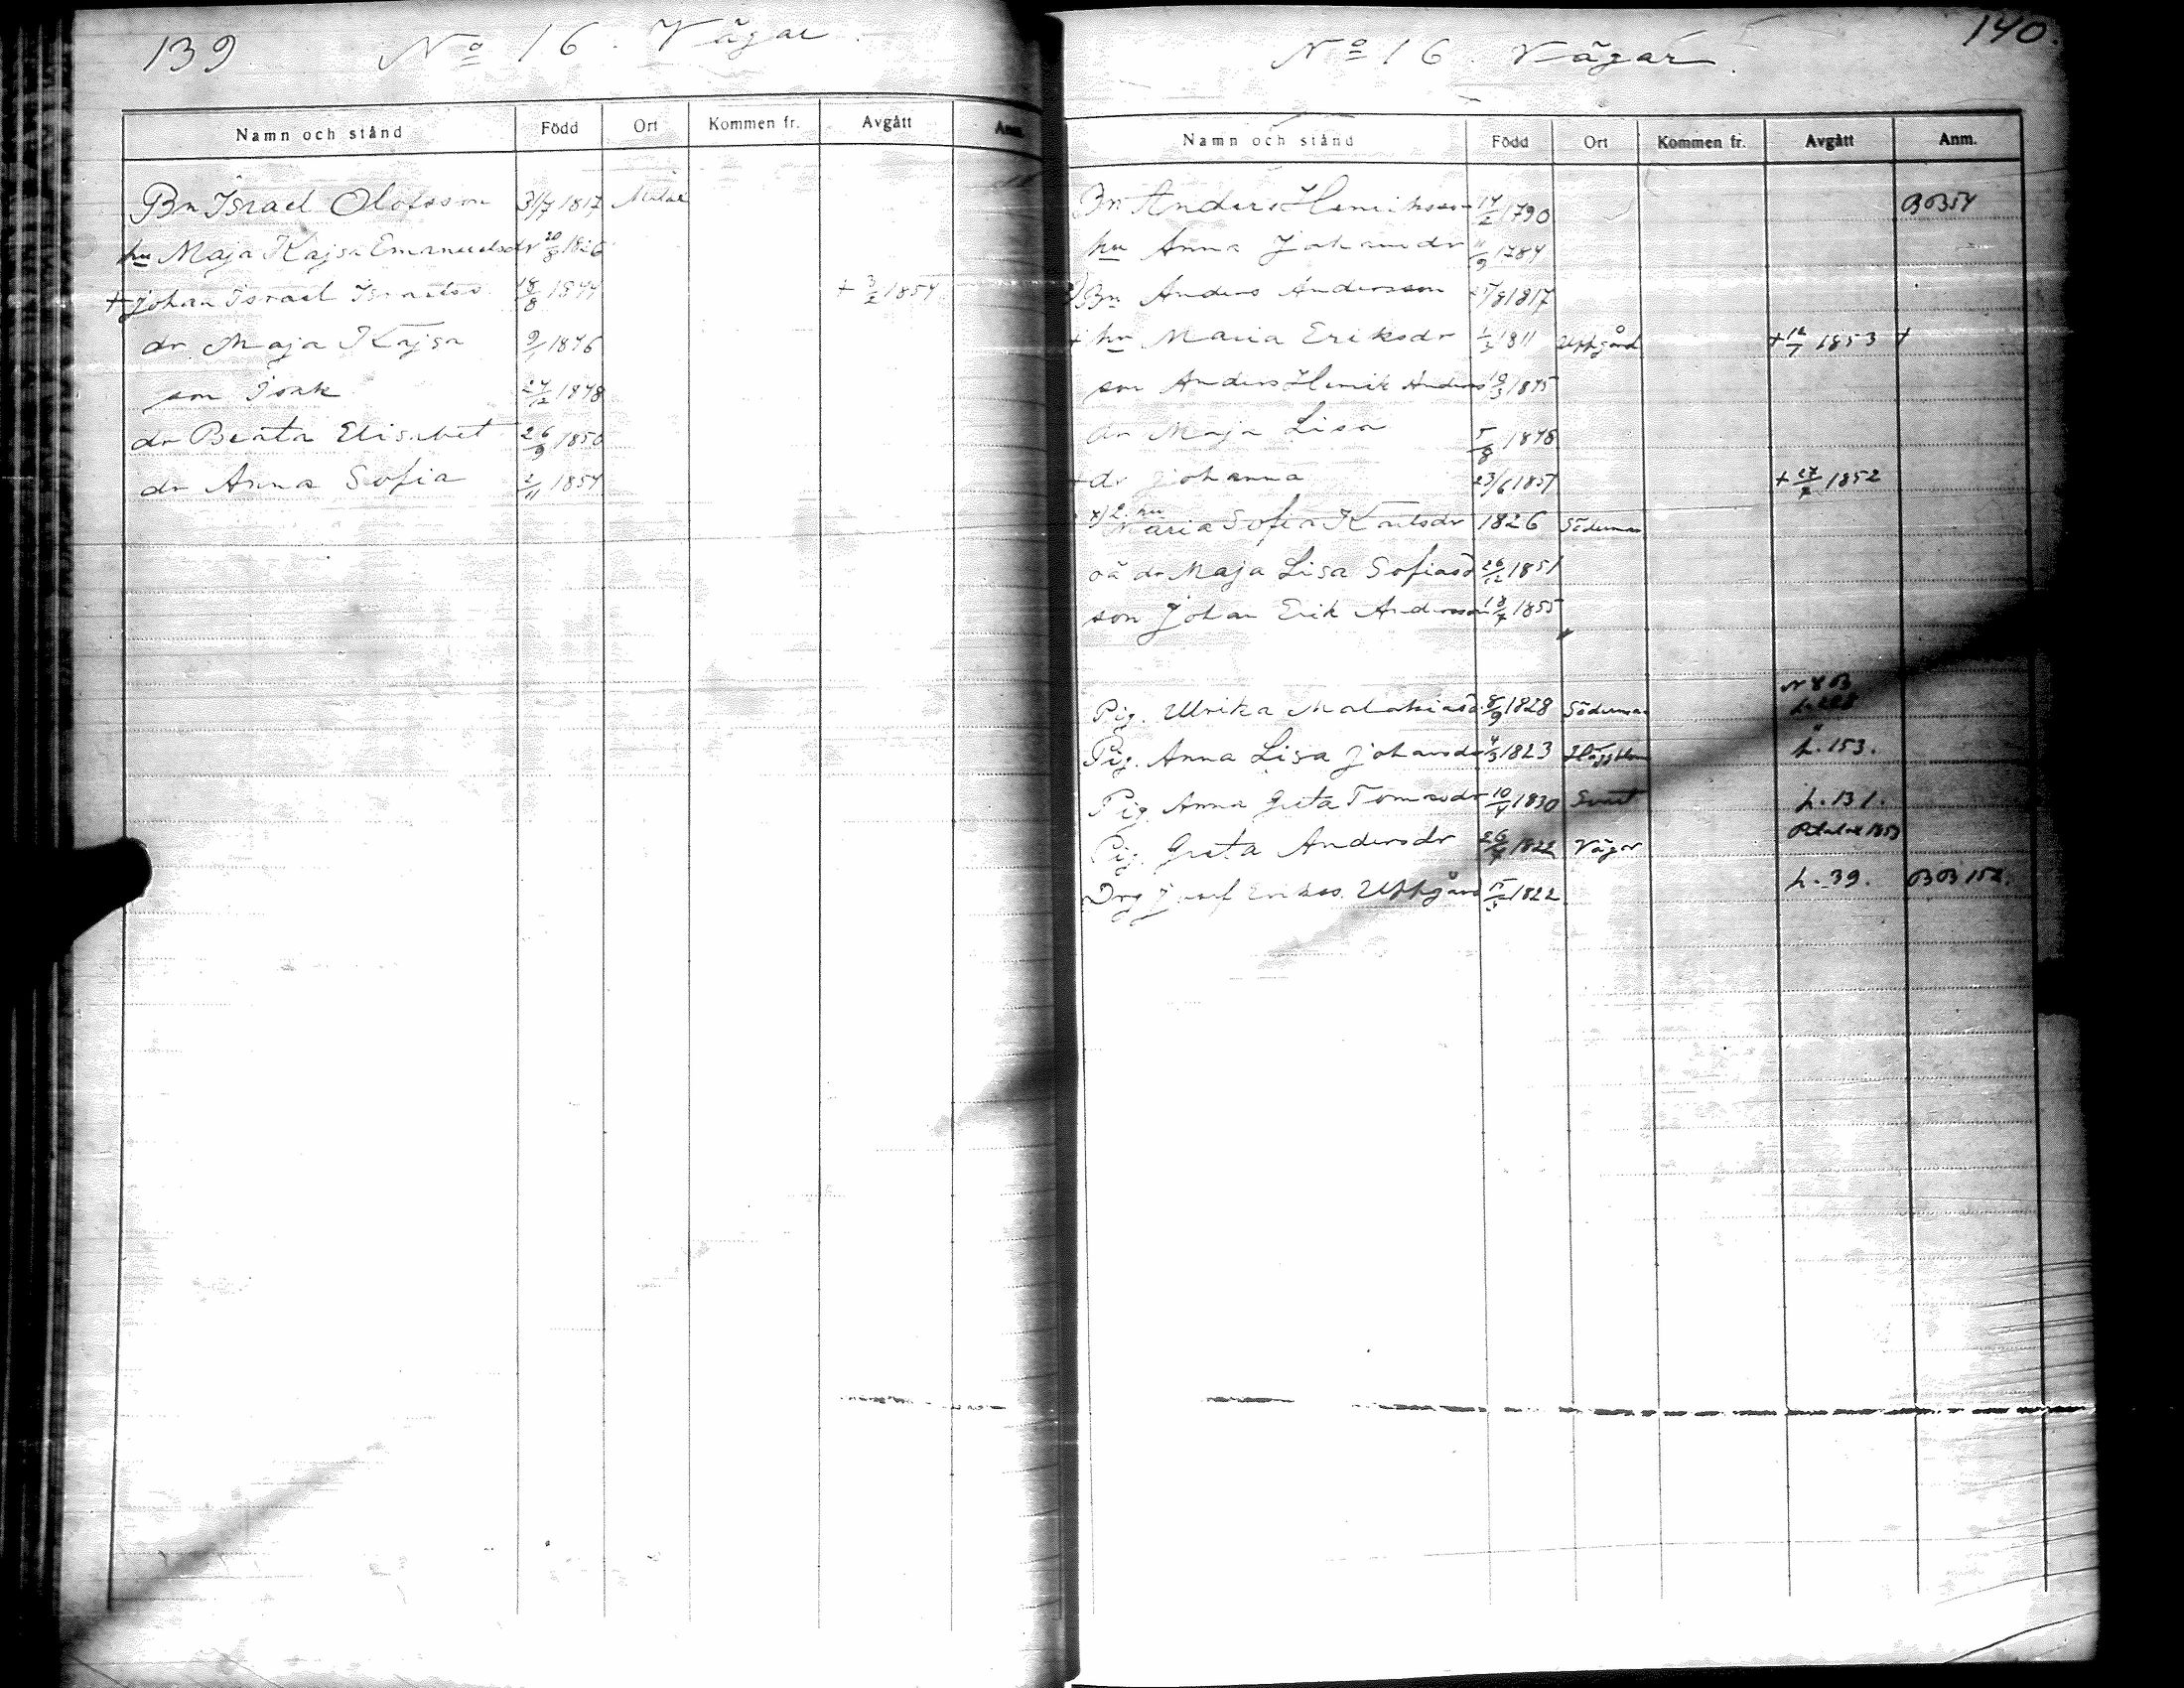 139 No 16. Vägar.
Namn och stånd Född Ort Kommen fr. Avgått Anm.
Bn Israel Olofsson 31/7 1817 Malax
hu Maja Kajsa Emanuelsdr 20/8 1826
+ Johan Israel Israelss. 18/8 1844 + 3/2 1854
dr Maja Kajsa 9/1 1846
son Isak 24/12 1848
dr Beata Elisabet 26/9 1850
dr Anna Sofia 2/11 1854
No 16. Vägar. 140.
Namn och stånd Född Ort Kommen fr. Avgått Anm.
Bn Anders Henriksson 14/2 1790 BB54
hu Anna Johansdr 11/9 1784
Bn Anders Andersson 1817
+ hu Maria Eriksdr 1811 Uppgård + 12/7 1853 +
son Anders Henrik Anders 1845
dr Maja Lisa 5/8 1848
+ dr Johanna 23/6 1851 + 1852
x) 2. hu
Maria Sofia Karlsdr 1826 Söderman
oä dr Maja Lisa Sofiasd 26/12 1851
son Johan Erik Andersson 18/7 1855
Pig. Ulrika Malakiasd. 8/9 1828 Söderman
Pig. Anna Lisa Johansdr 1823 Häggblom h. 153.
Pig. Anna Greta Tomasdr 10/4 1830 h. 131.
Pig. Greta Andersdr 1822 Vägar Petalax 1853
Drg Josef Erikss. Uppgård 1822 h. 39. BB 152.